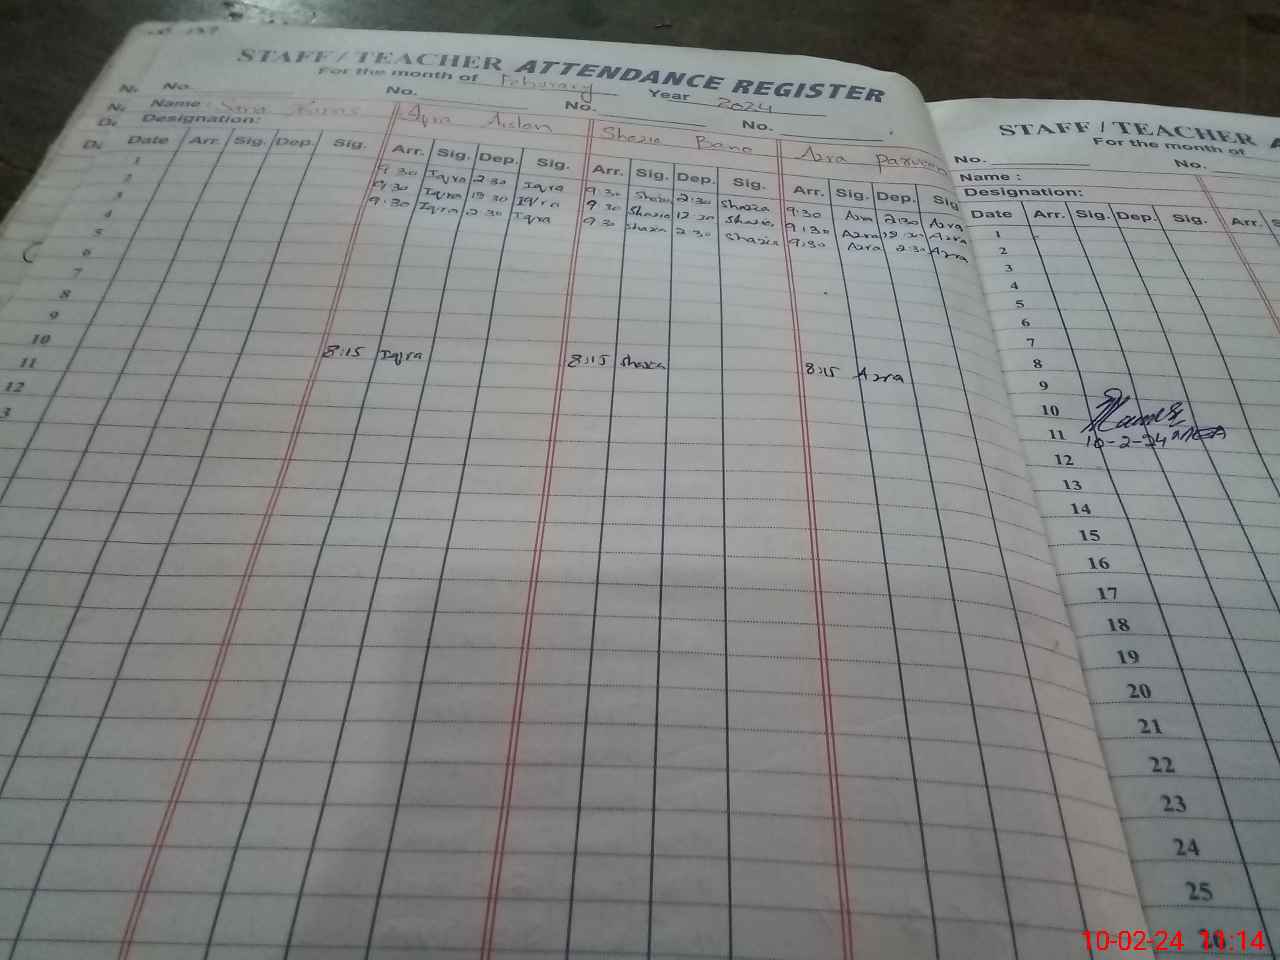 STAFF / TEACHER ATTENDANCE REGISTER
For the month of February Year 2024
No. No. No. No.
Name : Iqra Aslan Shazia Bano Azra Parveen
Designation:
Date Arr. Sig. Dep. Sig. Arr. Sig. Dep. Sig. Arr. Sig. Dep. Sig. Arr. Sig. Dep. Sig
1 9:30 Iqra 2:30 Iqra 9:30 Shazia 2:30 Shazia 9:30 Azra 2:30 Azra
2 9:30 Iqra 12:30 Iqra 9:30 Shazia 12:30 Shazia 9:30 Azra 12:30 Azra
3 9:30 Iqra 2:30 Iqra 9:30 Shazia 2:30 Shazia 9:30 Azra 2:30 Azra
4
5
6
7
8
9
10 8:15 Iqra 8:15 Shazia 8:15 Azra
11
12
3
STAFF / TEACHER A
For the month of
No. No.
Name :
Designation:
Date Arr. Sig. Dep. Sig. Arr. S
1
2
3
4
5
6
7
8
9
10
11 10-2-24 MEA
12
13
14
15
16
17
18
19
20
21
22
23
24
25
10-02-24 11:14